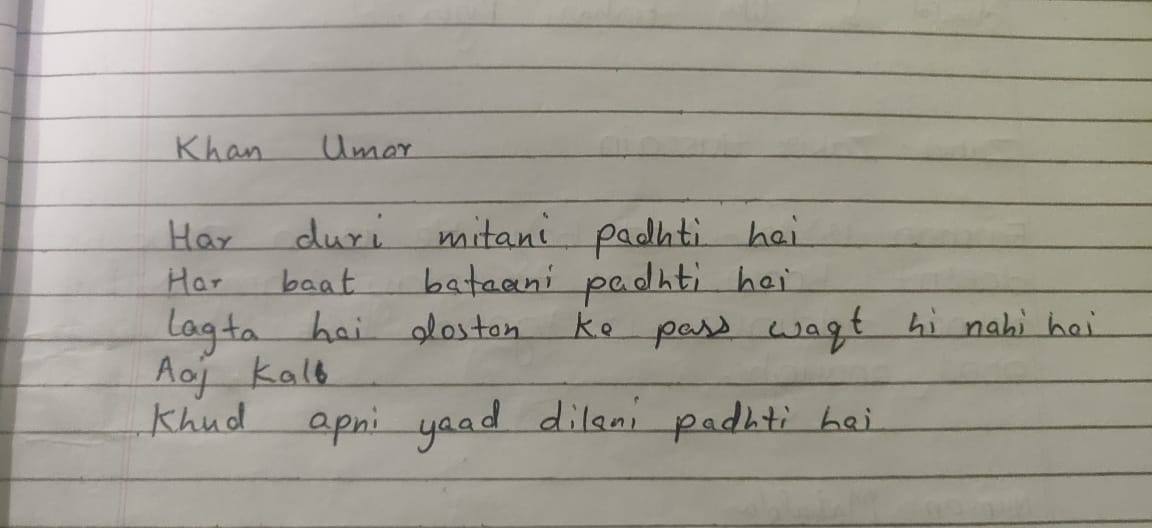 Khan Umar
Har duri mitani padhti hai
Har baat bataani padhti hai
lagta hai doston ke pass waqt hi nahi hai
Aaj kalb
Khud apni yaad dilani padhti hai